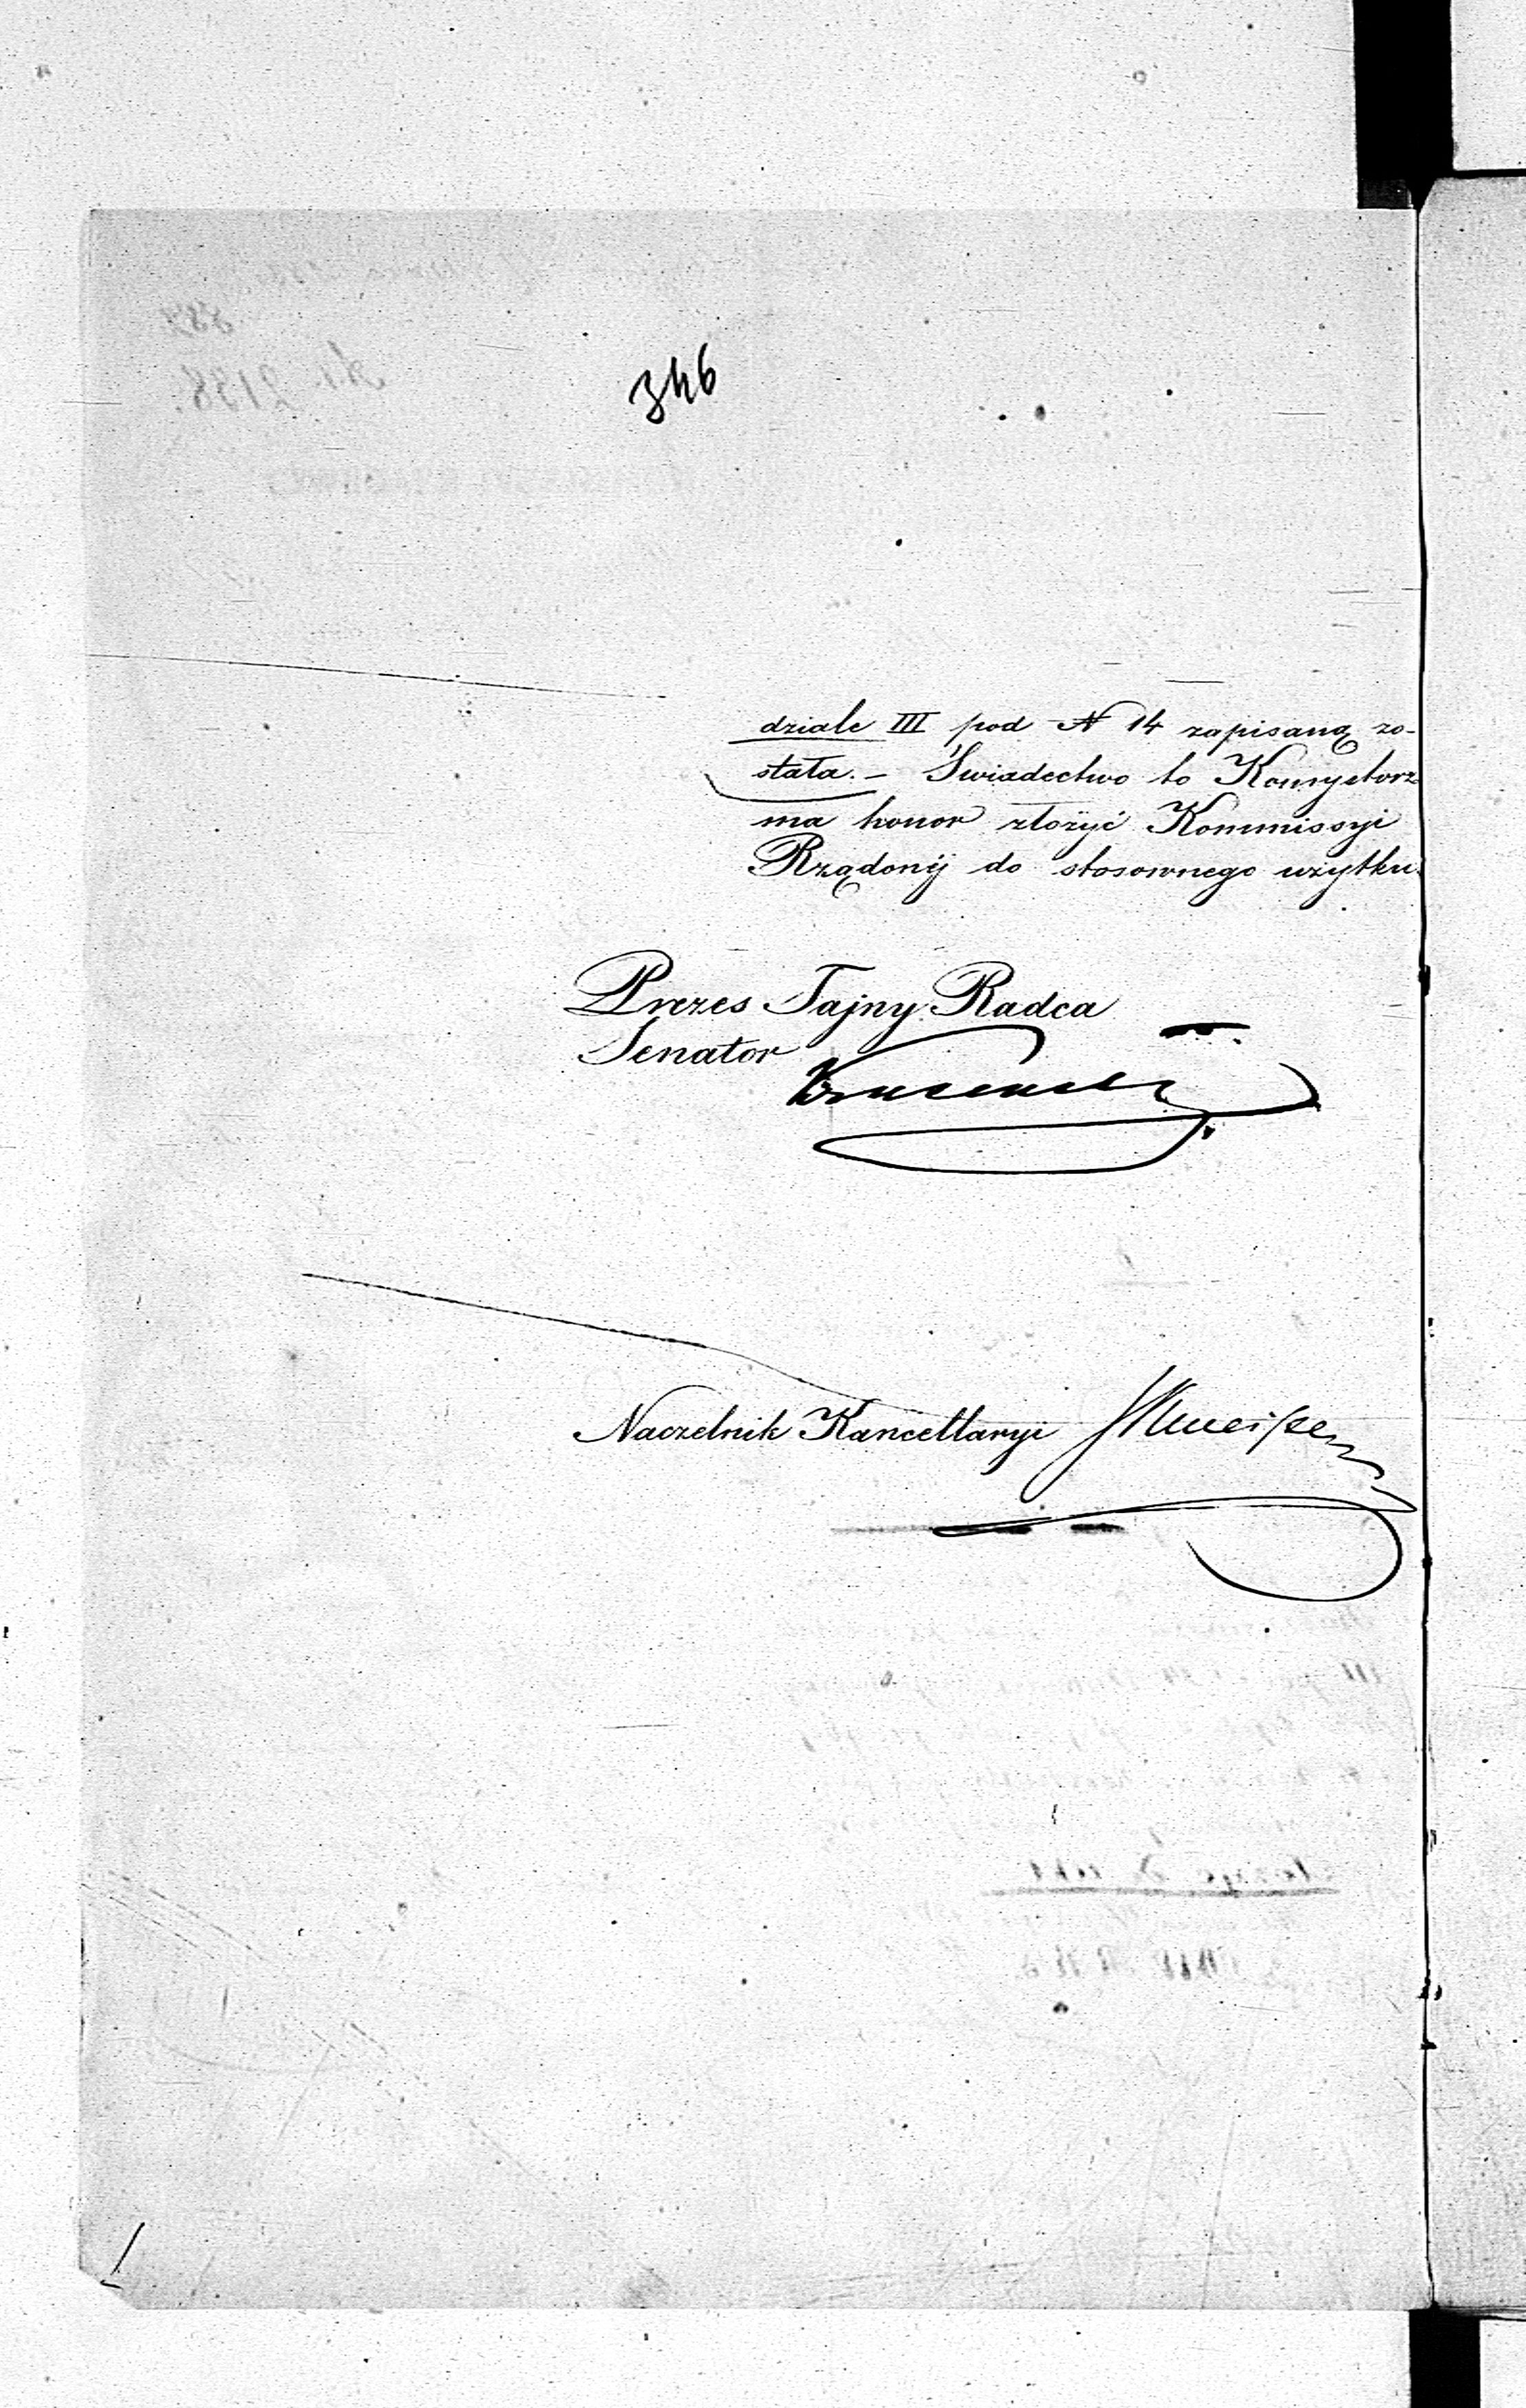 346
dziale III pod N 14 zapisaną zo-
stała. – Świadectwo to Konsystorz
ma honor złożyć Kommissyi
Rządowéj do stosownego użytku.
Prezes Tajny Radca
Senator
Naczelnik Kancellaryi